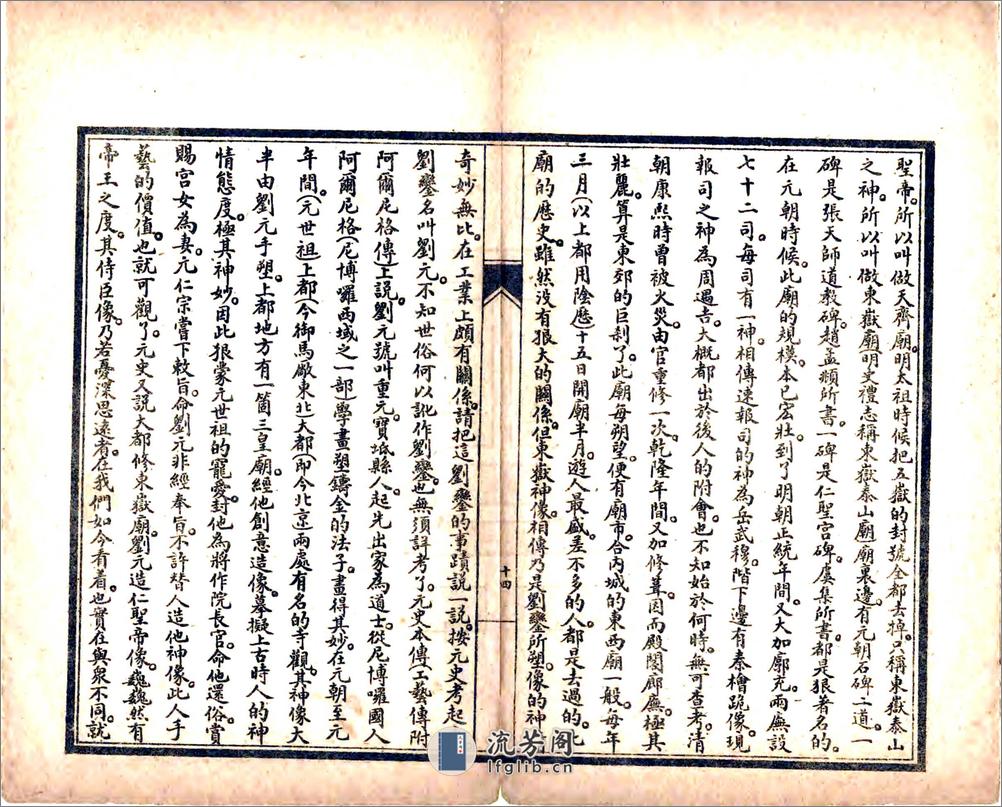 聖帝。所以叫做天齊廟。明太祖時候把五嶽的封號全都去掉。只稱東嶽泰山
之神。所以叫做東嶽廟。明史禮志稱東嶽泰山廟)廟裏邊有元朝石碑二道。一
碑是張天師道教碑。趙孟頫所書。一碑是仁聖宮碑。虞集所書。都是狠著名的。
在元朝時候。此廟的規模。本已宏壯。到了明朝正統年間。又大加廓充。兩廡設
七十二司。每司有一神。相傳速報司的神為岳武穆。階下邊有秦檜跪像。現
報司之神為周遇吉。大概都出於後人的附會。也不知始於何時。無可查考。清
朝康熙時曾被火災。由官重修一次。乾隆年間又加修葺。因而殿閣廊廡。極其
壯麗。算是東郊的巨刹了。此廟每朔望。便有廟市。合內城的東西廟一般。每年
三月(以上都用陰歷)十五日開廟半月。遊人最盛。差不多的人。都是去過的。此
廟的歷史。雖然沒有狠大的關係。但東嶽神像。相傳乃是劉鑾所塑。像的神
十四
奇妙無比。在工業上頗有關係。請把這劉鑾的事蹟說一說。按元史考起
劉鑾名叫劉元。不知世俗何以訛作劉鑾。也無須詳考了。元史本傳(工藝傳附
阿爾尼格傳)上說。劉元號叫重元。寶坻縣人。起先出家為道士。從尼博囉國人
阿爾尼格(尼博囉西域之一部)學畫塑鑄金的法子。畫得其妙。在元朝至元
年間。(元世祖)上都(今御馬廠東北)大都(即今北京)兩處有名的寺觀。其神像大
半由劉元手塑。上都地方有一箇三皇廟。經他創意造像。摹擬上古時人的神
情態度。極其神妙。因此狠蒙元世祖的寵愛。封他為將作院長官。命他還俗。賞
賜宮女為妻。元仁宗嘗下敕旨。命劉元非經奉旨。不許替人造他神像。此人手
藝的價值。也就可觀了。元史又說大都修東嶽廟。劉元造仁聖帝像。巍巍然有
帝王之度。其侍臣像。乃若憂深思遠者。在我們如今看着。也實在與衆不同。就
流芳阁
lfglib.cn